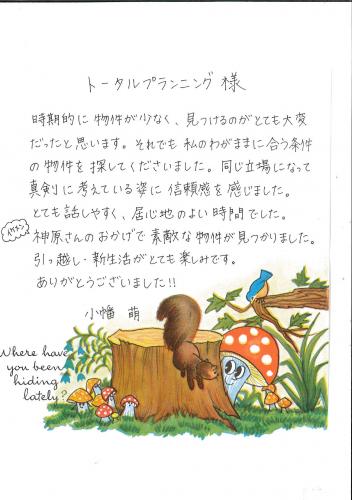 トータルプランニング 様
時期的に物件が少なく、見つけるのがとても大変
だったと思います。それでも私のわがままに合う条件
の物件を探してくださいました。同じ立場になって
真剣に考えている姿に信頼感を感じました。
とても話しやすく、居心地のよい時間でした。
イケメン
神原さんのおかげで素敵な物件が見つかりました。
引っ越し・新生活がとても楽しみです。
ありがとうございました!!
小幡 萌
Where have
you been
hiding
lately?